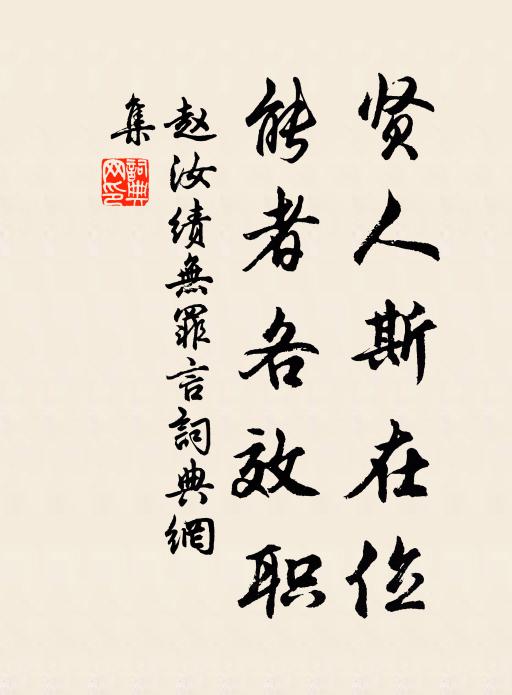 贤人斯在位
能者各效职
赵汝绩無罪言詞典網
集
詞典
网印